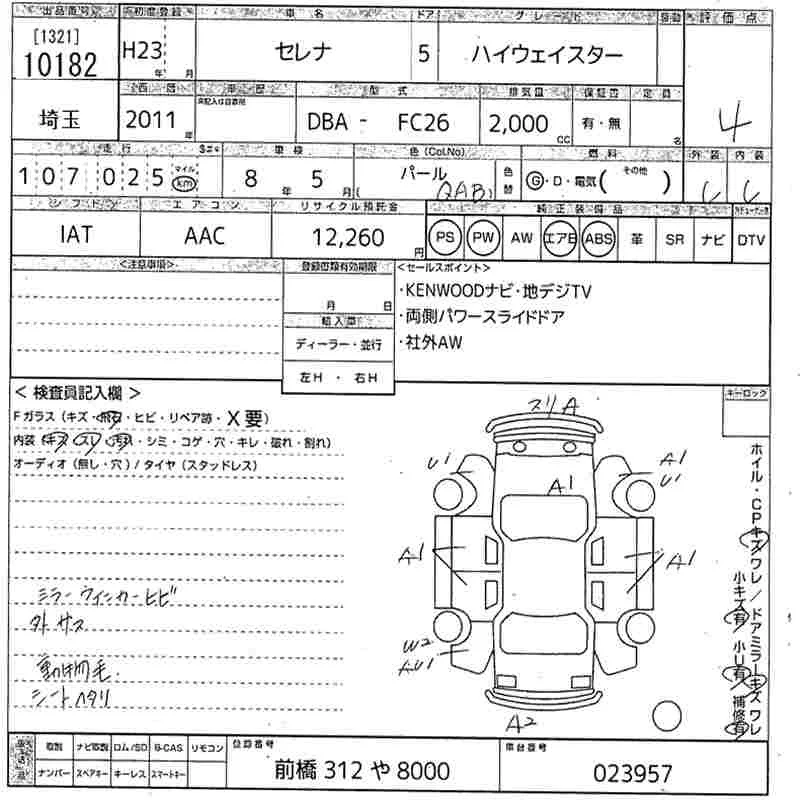 出品番号 初年度登録 車名 ドア グレード 評価点
[1321]
10182 H23 年 月 セレナ 5 ハイウェイスター 4
西暦 車歴 型式 排気量 保証書 定員
埼玉 2011 年 DBA - FC26 2,000 CC 有・無 名
走行 車検 色(Col.No) 燃料 外装 内装
107025 マイル km 8 年 5 月 パール (QAB) 色替 G・D・電気( その他 ) C C
シフト エアコン リサイクル預託金 純正装備品
IAT AAC 12,260 円 PS PW AW エアB ABS 革 SR ナビ DTV
<注意事項> 登録書類有効期限 <セールスポイント>
月 日
・KENWOODナビ・地デジTV
輸入車
・両側パワースライドドア
ディーラー・並行
・社外AW
左H ・ 右H
< 検査員記入欄 > キーロック
Fガラス(キズ・飛石・ヒビ・リペア跡・X要)
内装(キズ・スレ・汚れ・シミ・コゲ・穴・キレ・破れ・割れ)
オーディオ(無し・穴)/タイヤ(スタッドレス)
スリA
U1
A1
U1
A1
A1
A1
W2
AU1
A2
ミラーウィンカーヒビ
外サス
動物毛
シートヘタリ
ホイル・CPキズワレ/ドアミラーキズワレ
小キズ有 小U有 補修有
取説 ナビ取説 ロム/SD B-CAS リモコン 登録番号 車台番号
ナンバー スペアキー キーレス スマートキー 前橋 312 や 8000 023957